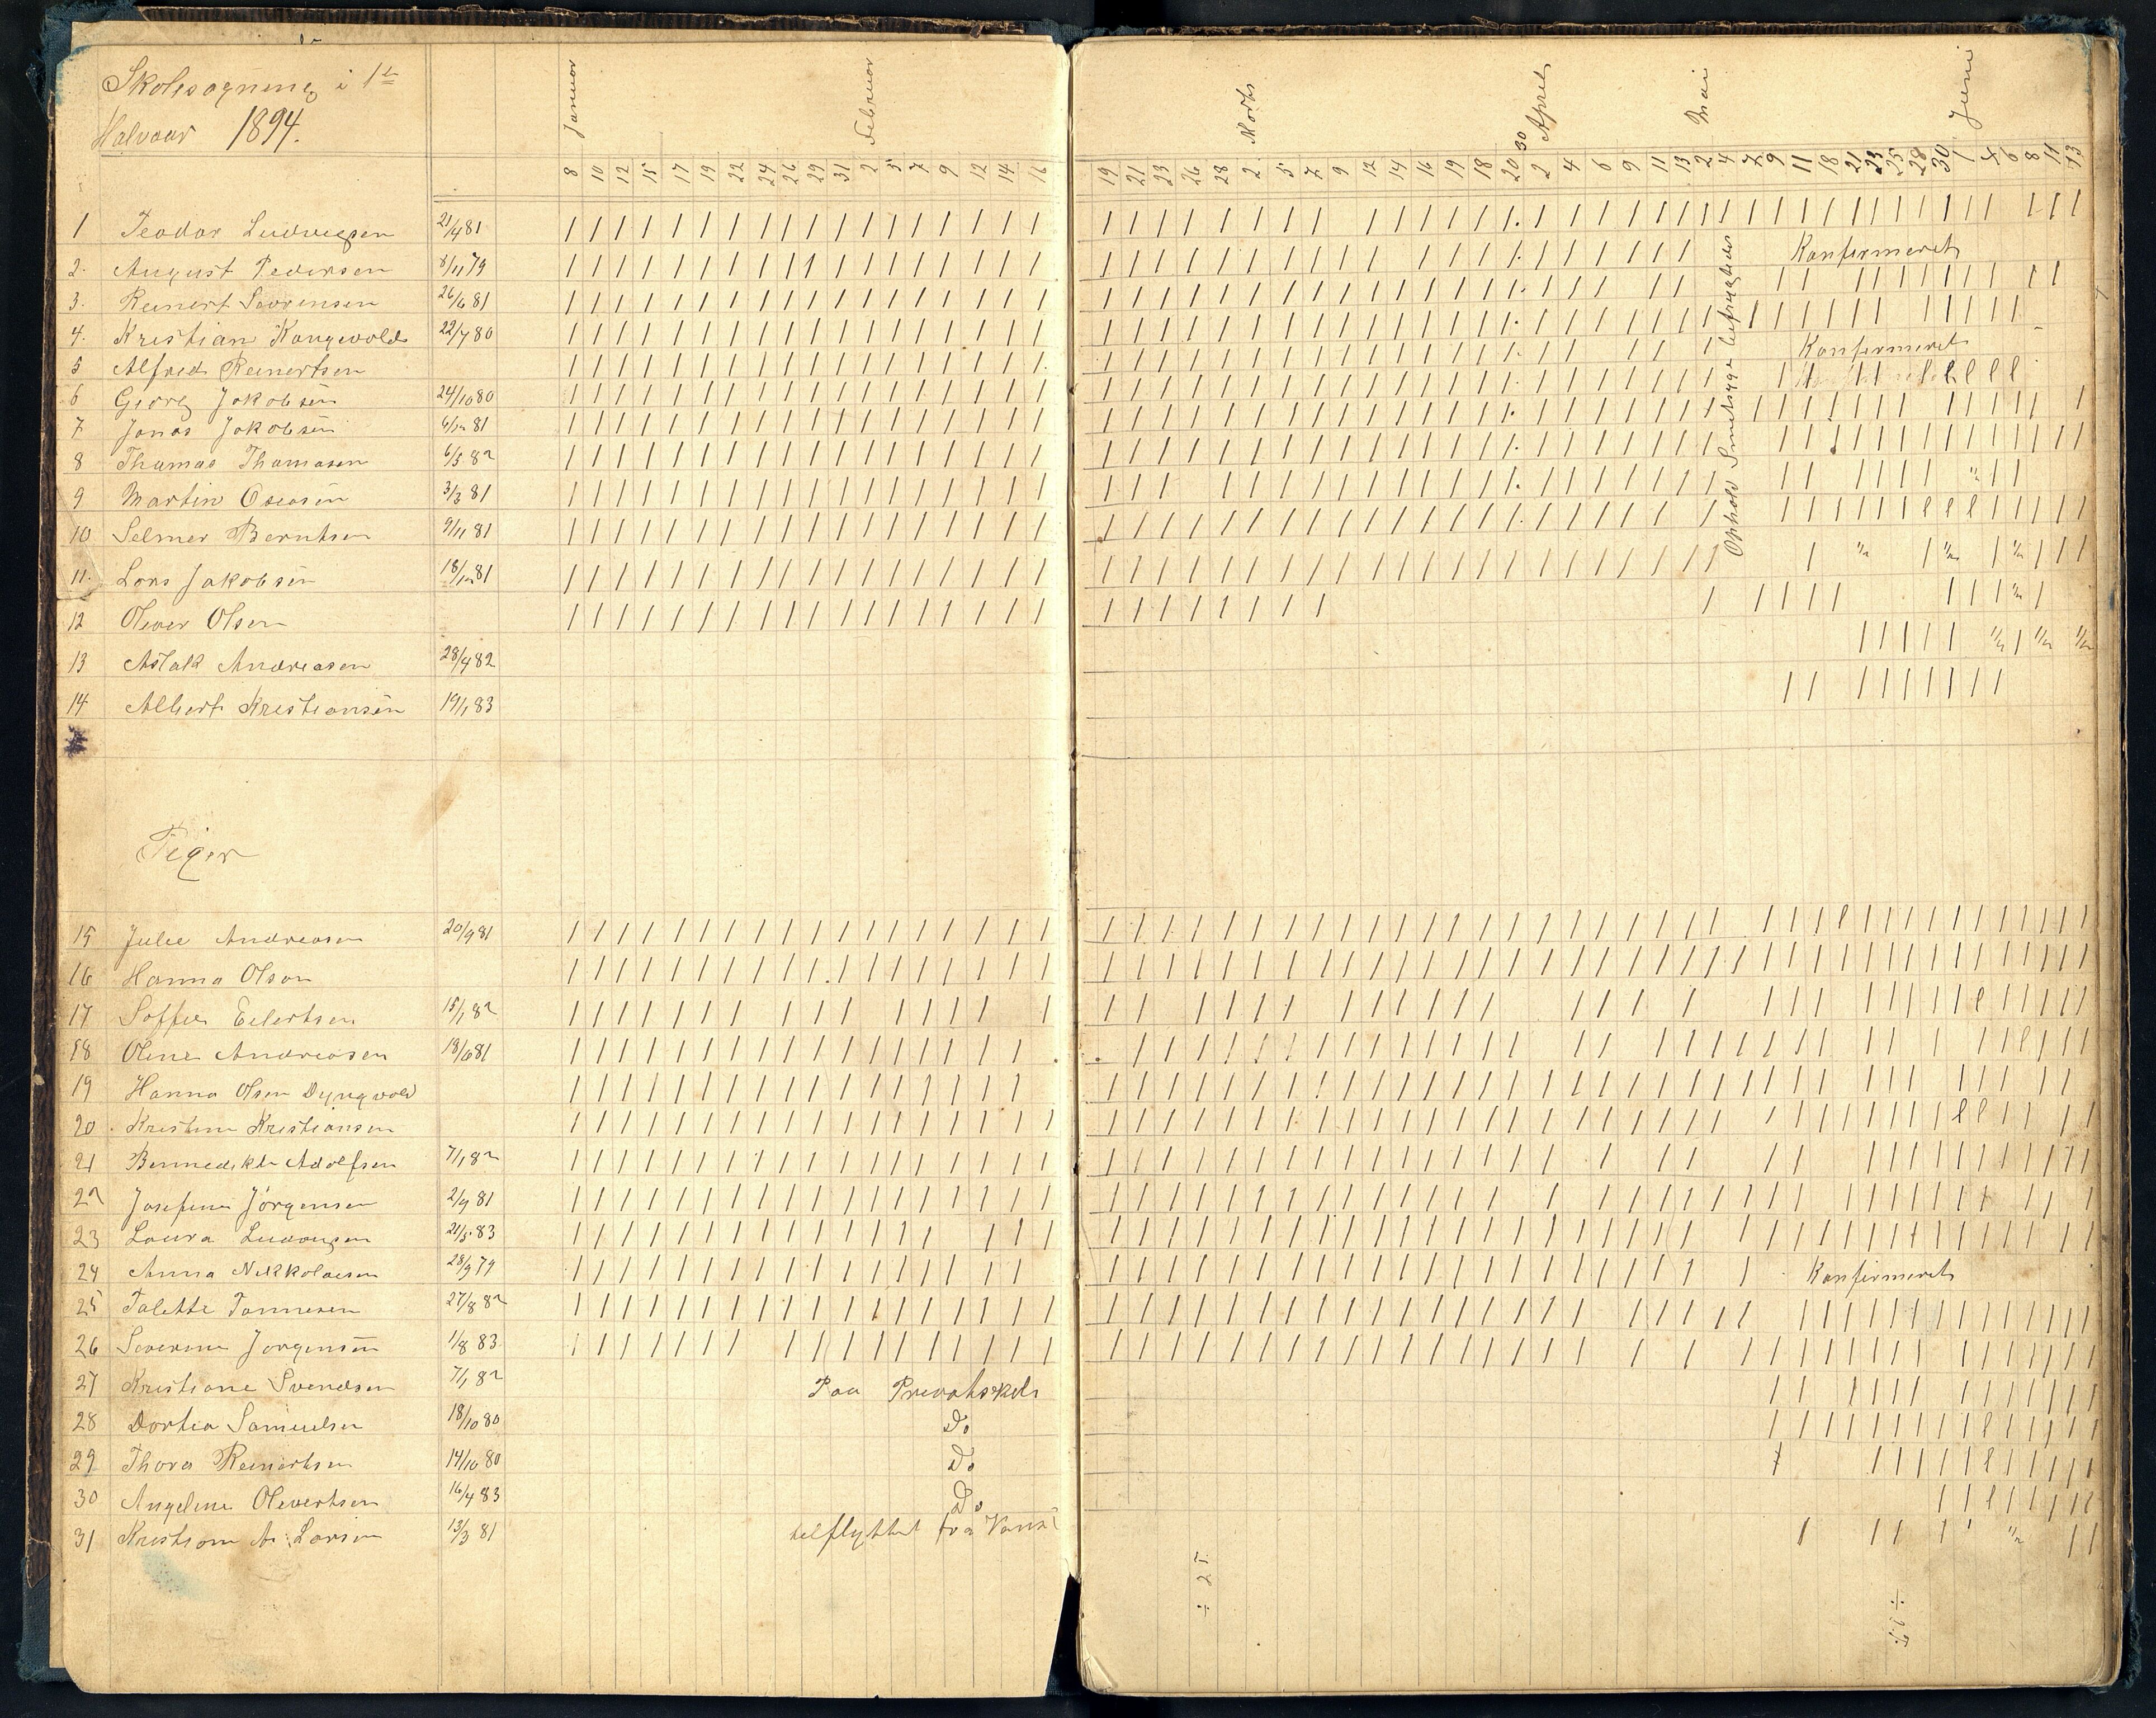 Skolesøgning i 1te
Halvaar 1894.
Januar Februar Marts April Mai Juni
8 10 12 15 17 19 22 24 26 29 31 2 5 7 9 12 14 16 19 21 23 26 28 2 5 7 9 12 14 16 19 18 20 30 2 4 6 9 11 13 2 4 7 9 11 18 21 23 25 28 30 1 4 6 8 11 13
1 Teodor Ludvigsen 21/4 81
2. August Pedersen 8/11 79 Konfirmeret
3. Reinert Sørensen 26/6 81
4. Kristian Kongevold 22/7 80
5 Alfred Reinertsen Konfirmeret
6 Georg Jakobsen 24/10 80
7 Jonas Jakobsen 6/12 81
8 Thomas Thomasen 6/5 82
9 Martin Oseasen 3/3 81
10 Selmer Berntsen 9/11 81
11. Lars Jakobsen 18/12 81
12 Oliver Olsen
13 Aslak Andreasen 28/4 82
14 Albert Kristiansen 19/1 83
Ophold
Piger
15 Julie Andreasen 20/9 81
16 Hanna Olsen
17 Soffie Eilertsen 15/1 82
18 Oline Andreasen 18/6 81
19 Hanna Olsen Dyngvold
20 Kristine Kristiansen
21 Bennedikte Adolfsen 7/1 82
22 Josefine Jörgensen 2/9 81
23 Laura Ludvigsen 21/5 83
24 Anna Nikkolaisen 28/9 79 Konfirmeret
25 Talette Tønnesen 27/8 82
26 Severine Jørgensen 1/8 83
27 Kristiane Svendsen 7/1 82 Paa Privatskole
28 Dortea Samuelsen 18/10 80 Do
29 Thora Reinertsen 14/10 80 Do
30 Angeline Olevertsen 16/4 83 Do
31 Kristiane A. Larsen 13/3 81 tilflyttet fra Vanse